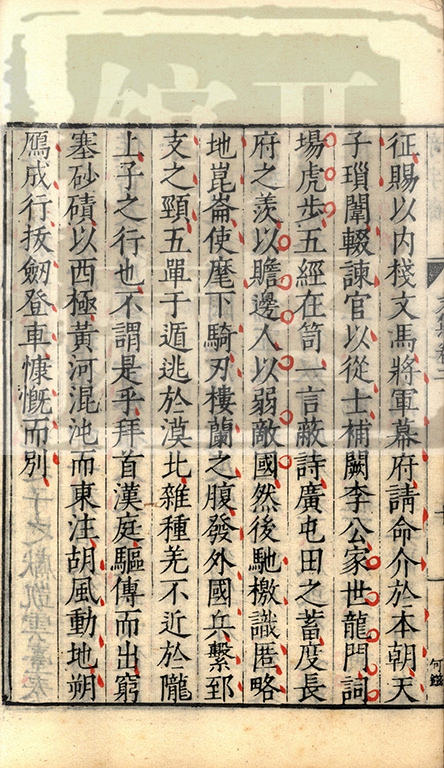 征賜以内棧文馬將軍幕府請命介於本朝天
子瑣闈輟諫官以從士補闕李公家世龍門詞
場虎步五經在笥一言蔽詩廣屯田之蓄度長
府之羨以贍邊人以弱敵國然後馳檄識匿略
地崑崙使麾下騎刃樓蘭之腹發外國兵繫郅
支之頸五單于遁逃於漠北雜種羌不近於隴
上子之行也不謂是乎拜首漢庭驅傳而出窮
塞砂磧以西極黃河混沌而東注胡風動地朔
鴈成行拔劒登車慷慨而別